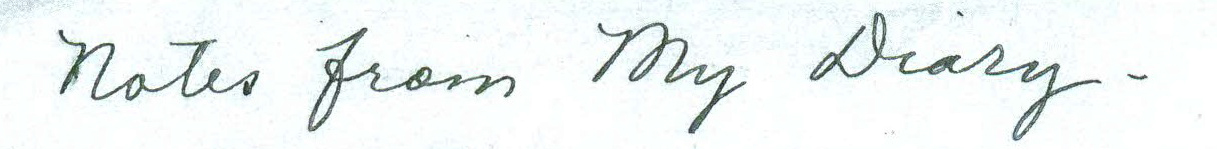 Notes from My Diary -